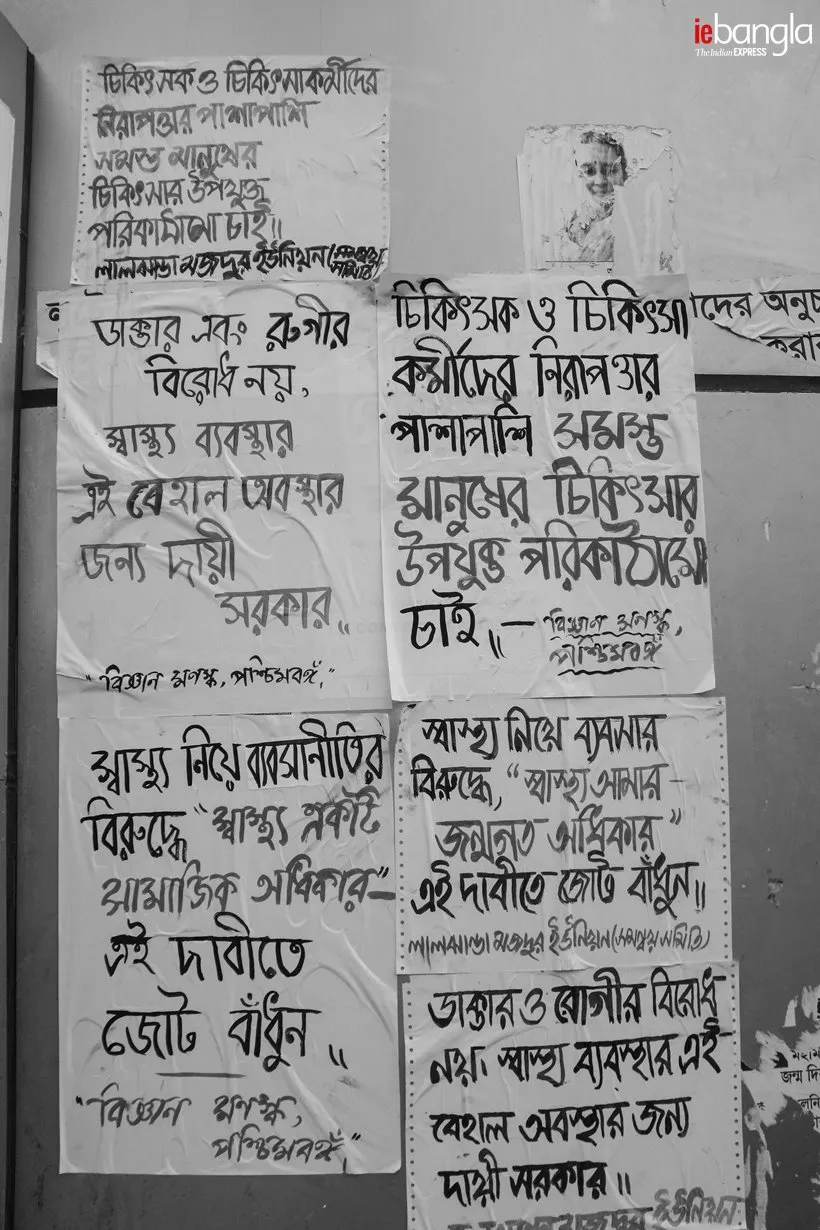 iebangla
The Indian EXPRESS
চিকিৎসক ও চিকিৎসাকর্মীদের
নিরাপত্তার পাশাপাশি
সমস্ত মানুষের
চিকিৎসার উপযুক্ত
পরিকাঠামো চাই॥
লালঝান্ডা মজদুর ইউনিয়ন (সমন্বয় সমিতি)
ডাক্তার এবং রুগীর
বিরোধ নয়,
স্বাস্থ্য ব্যবস্থার
এই বেহাল অবস্থার
জন্য দায়ী
সরকার॥
"বিজ্ঞান মনস্ক, পশ্চিমবঙ্গ,"
চিকিৎসক ও চিকিৎসা
কর্মীদের নিরাপত্তার
পাশাপাশি সমস্ত
মানুষের চিকিৎসার
উপযুক্ত পরিকাঠামো
চাই॥—
বিজ্ঞান মনস্ক,
পশ্চিমবঙ্গ
দের অনুচ
করার
স্বাস্থ্য নিয়ে ব্যবসানীতির
বিরুদ্ধে "স্বাস্থ্য একটি
সামাজিক অধিকার"—
এই দাবীতে
জোট বাঁধুন॥
"বিজ্ঞান মনস্ক,
পশ্চিমবঙ্গ,"
স্বাস্থ্য নিয়ে ব্যবসার
বিরুদ্ধে, "স্বাস্থ্য আমার
জন্মগত অধিকার"
এই দাবীতে জোট বাঁধুন॥
লালঝান্ডা মজদুর ইউনিয়ন (সমন্বয় সমিতি)
ডাক্তার ও রোগীর বিরোধ
নয়, স্বাস্থ্য ব্যবস্থার এই
বেহাল অবস্থার জন্য
দায়ী সরকার॥
মজদুর ইউনিয়ন
জন্ম দি